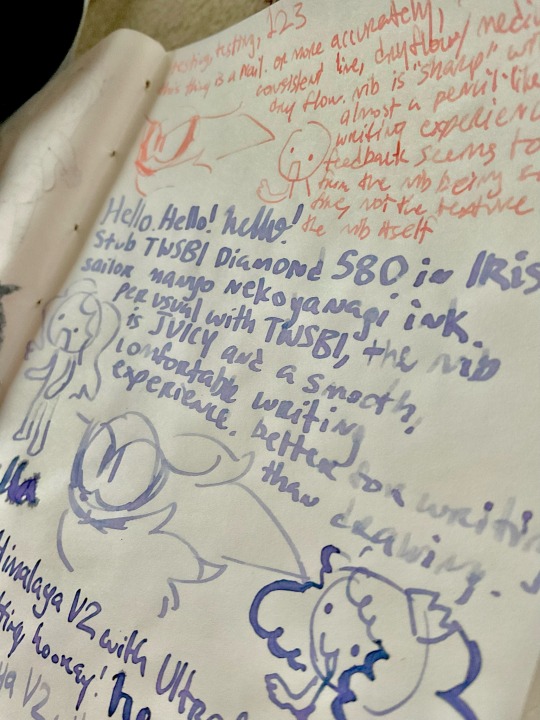 testing, testing, 123
this thing is a nail. or more accurately,
consistent line, dry flow/medi
dry flow. nib is "sharp" wi
almost a pencil-like
writing experienc
feedback seems to
from the nib being so
fine, not the texture
the nib itself
Hello. Hello! hello!
Stub TWSBI Diamond 580 in IRIS
sailor manyo nekoyanagi ink.
per usual with TWSBI, the nib
is JUICY and a smooth,
comfortable writing
experience. better for writin
than drawing.
Himalaya V2 with Ultra
ting, hooray!
ya V2 with